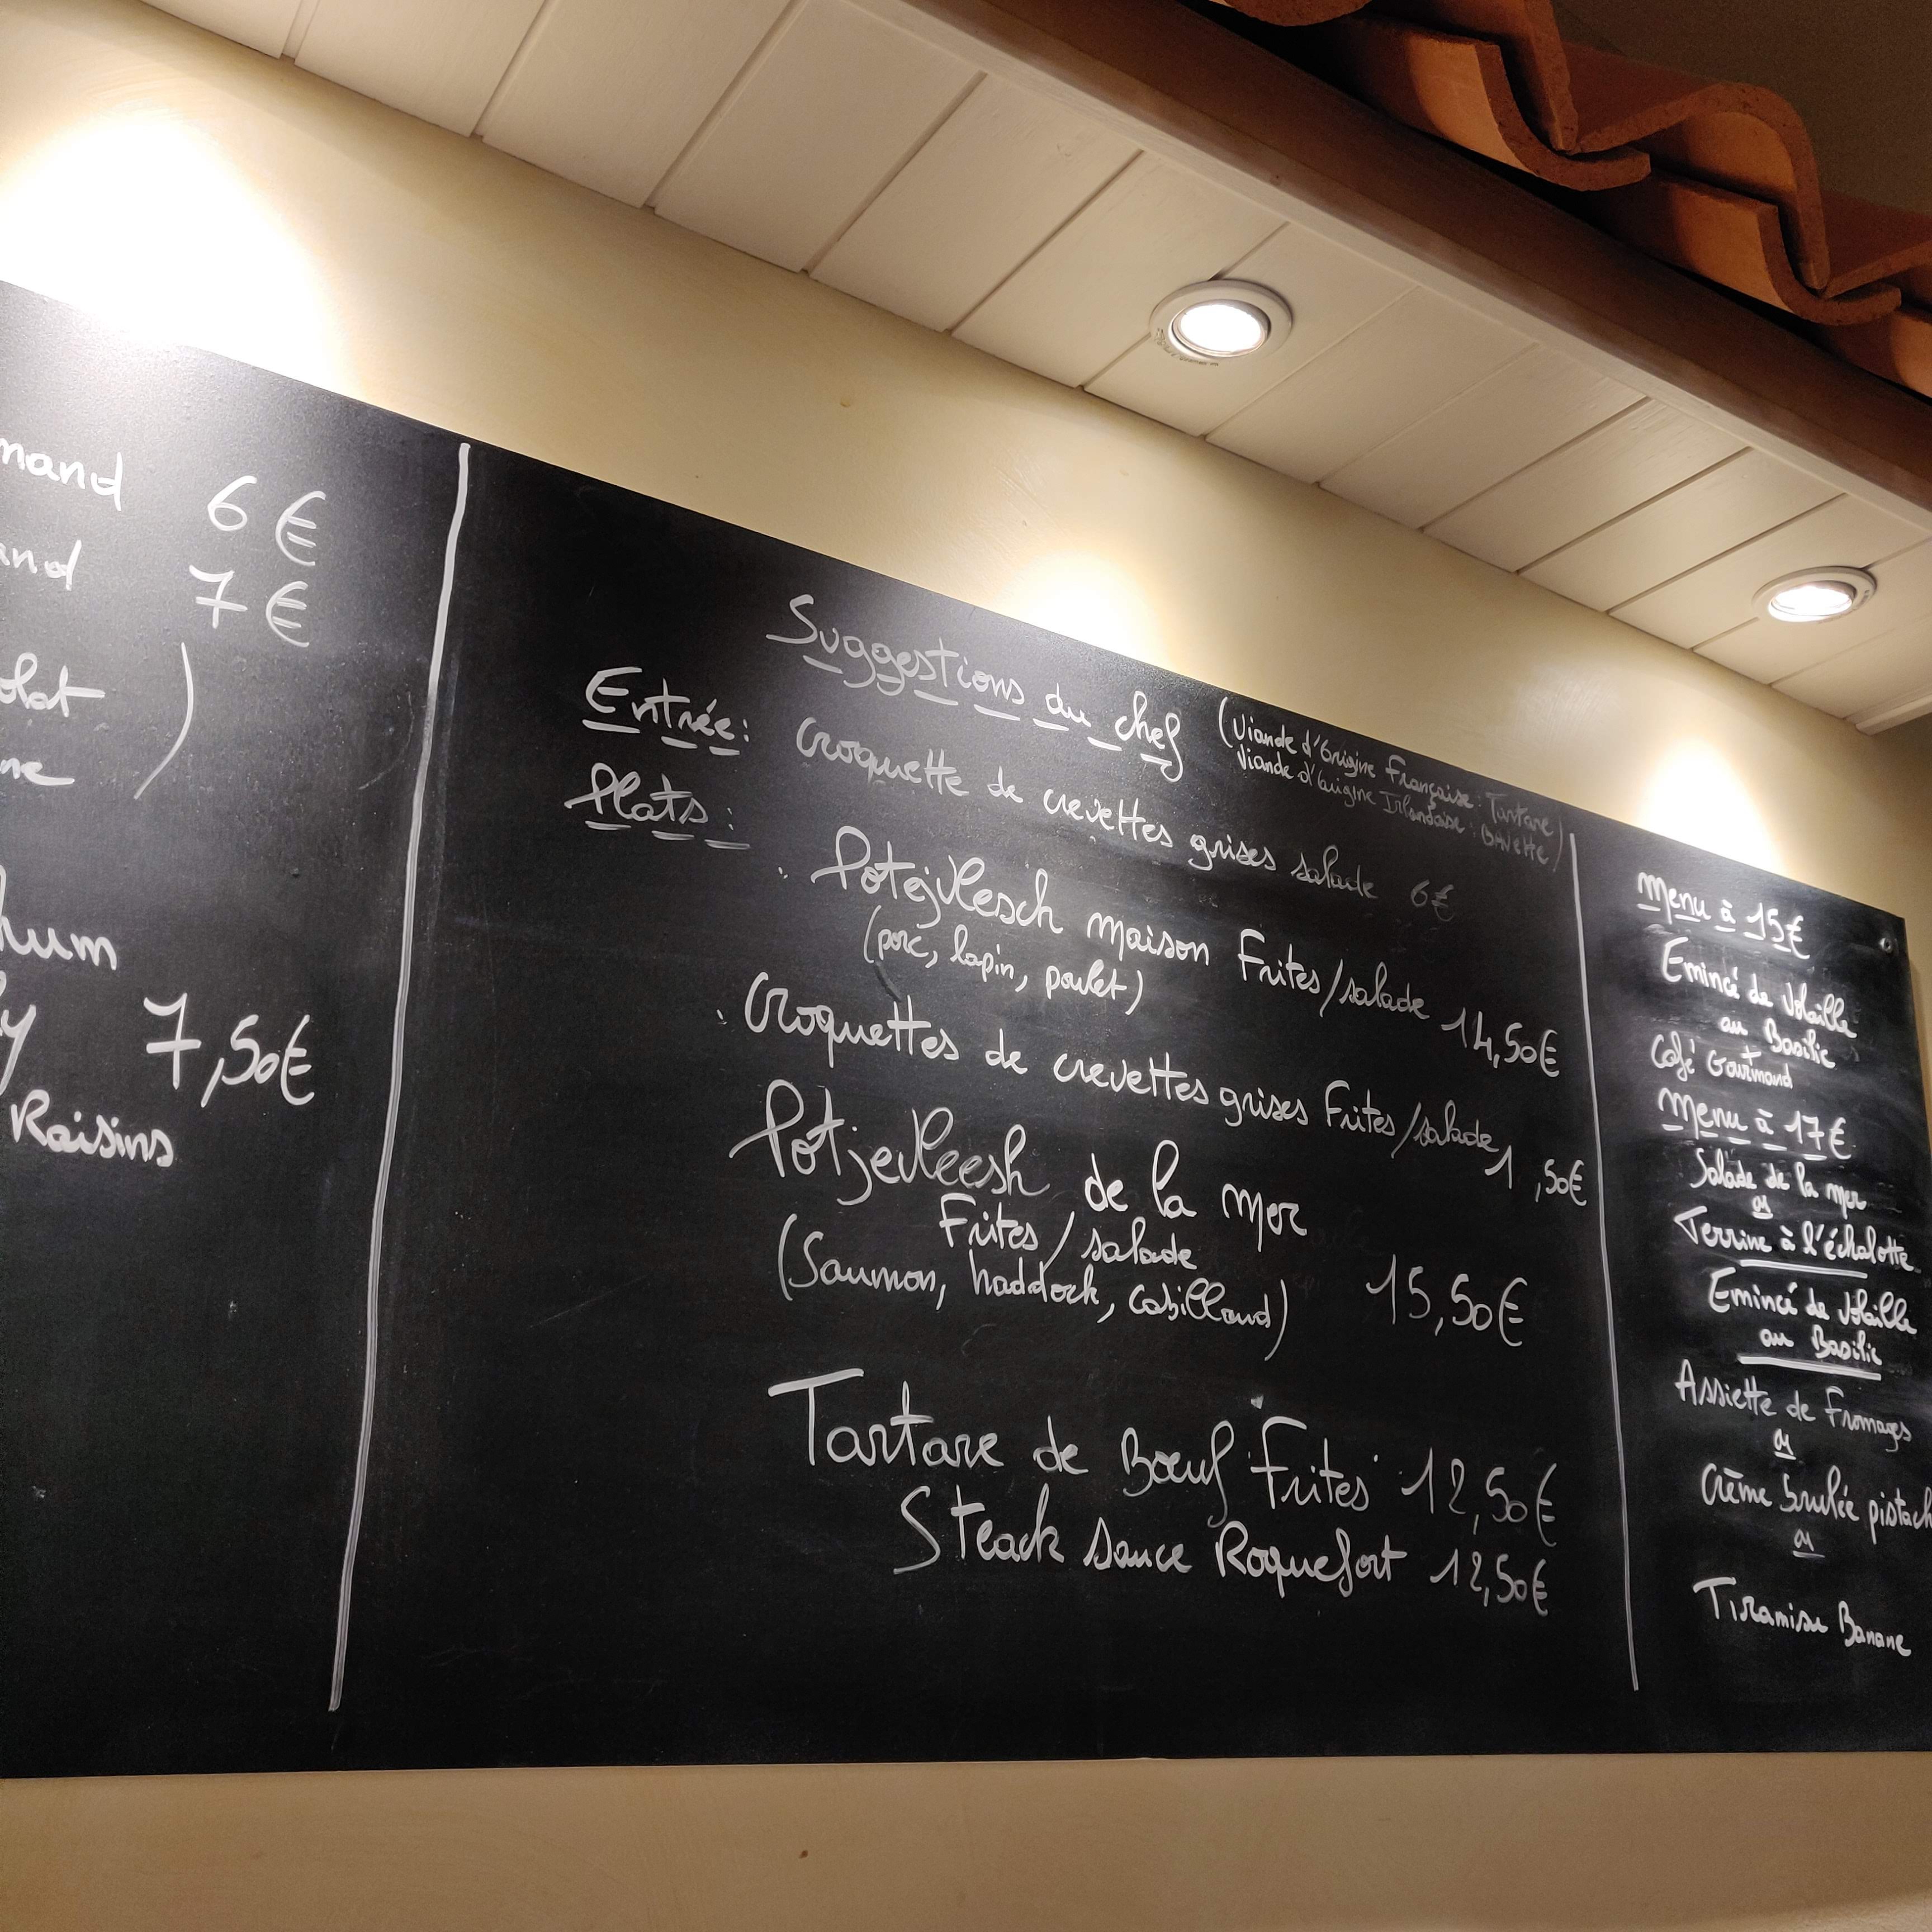 mand 6€
and 7€
olat )
ne
hum
y 7,50€
Raisins
Suggestions du chef
(Viande d'Origine Française : Tartare
Viande d'Origine Irlandaise : Bavette)
Entrée: Croquette de crevettes grises salade 6€
Plats:
. Potejvlesch maison Frites/salade 14,50€
(porc, lapin, poulet)
. Croquettes de crevettes grises Frites/salade 1 ,50€
Potjevleesh de la mer
Frites/salade
(Saumon, haddock, cabillaud) 15,50€
Tartare de Bœuf Frites 12,50€
Steack sauce Roquefort 12,50€
Menu à 15€
Emincé de Volaille
au Basilic
Café Gourmand
Menu à 17€
Salade de la mer
ou
Terrine à l'échalotte
Emincé de Volaille
au Basilic
Assiette de Fromages
ou
Crème brulée pistach
ou
Tiramisu Banane